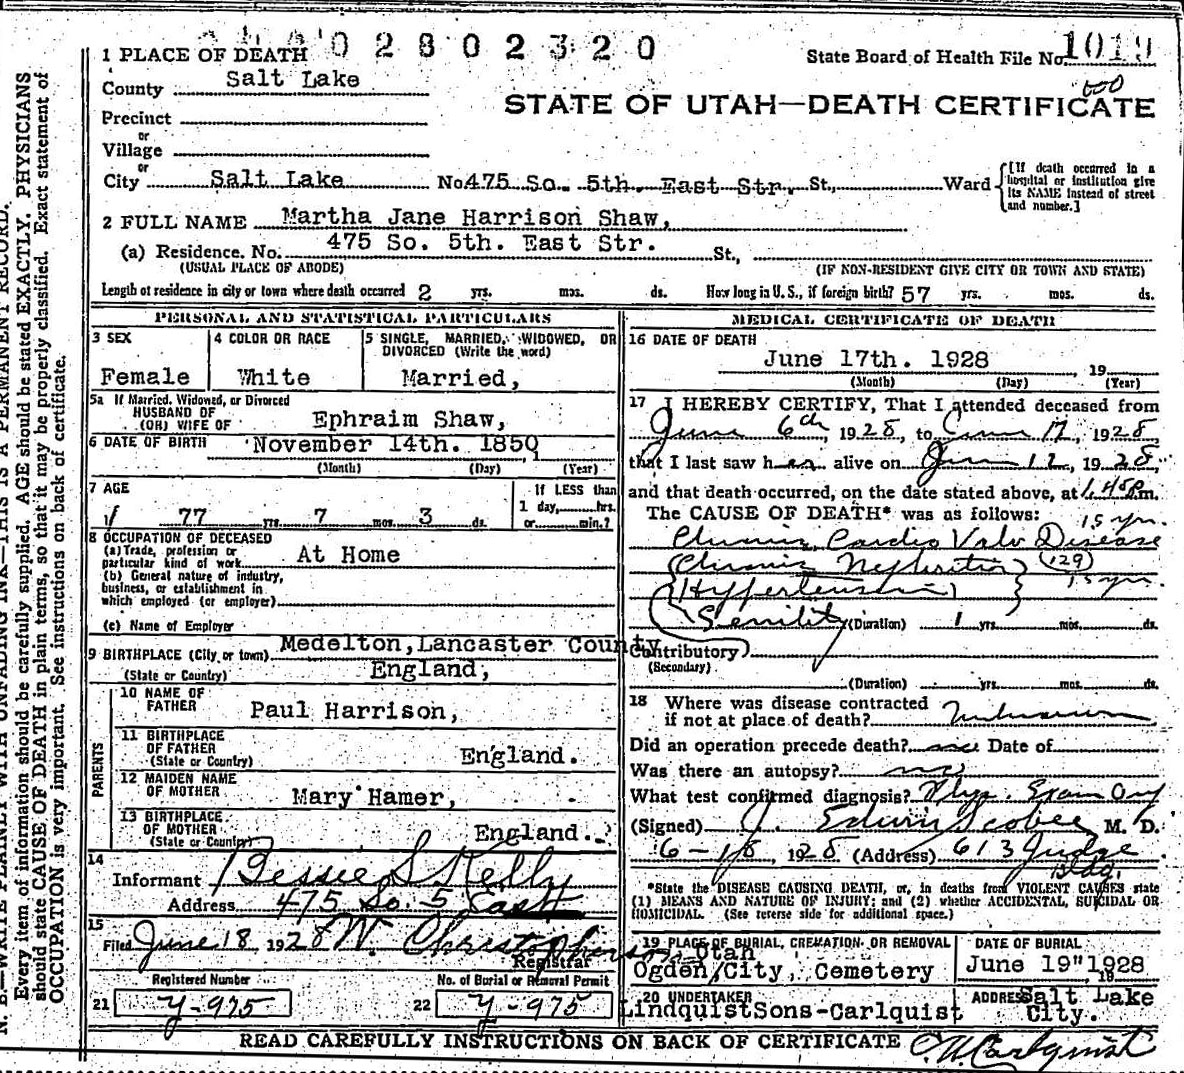 02802320
1 PLACE OF DEATH
State Board of Health File No 1019
County Salt Lake
STATE OF UTAH—DEATH CERTIFICATE
Precinct
or
Village
or
City Salt Lake No 475 So. 5th. East Str. St., Ward
[If death occurred in a hospital or institution give its NAME instead of street and number.]
2 FULL NAME Martha Jane Harrison Shaw,
(a) Residence. No. 475 So. 5th. East Str. St.,
(USUAL PLACE OF ABODE) (IF NON-RESIDENT GIVE CITY OR TOWN AND STATE)
Length of residence in city or town where death occurred 2 yrs. mos. ds. How long in U. S., if foreign birth? 57 yrs. mos. ds.
PERSONAL AND STATISTICAL PARTICULARS
3 SEX
Female
4 COLOR OR RACE
White
5 SINGLE, MARRIED, WIDOWED, OR
DIVORCED (Write the word)
Married,
5a If Married, Widowed, or Divorced
HUSBAND OF
(OR) WIFE OF Ephraim Shaw,
6 DATE OF BIRTH November 14th. 1850
(Month) (Day) (Year)
7 AGE
77 yrs. 7 mos. 3 ds.
If LESS than
1 day, hrs.
or min.?
8 OCCUPATION OF DECEASED
(a) Trade, profession or
particular kind of work At Home
(b) General nature of industry,
business, or establishment in
which employed (or employer)
(c) Name of Employer
9 BIRTHPLACE (City or town) Medelton, Lancaster County
(State or Country) England,
PARENTS
10 NAME OF
FATHER Paul Harrison,
11 BIRTHPLACE
OF FATHER
(State or Country) England.
12 MAIDEN NAME
OF MOTHER Mary Hamer,
13 BIRTHPLACE
OF MOTHER
(State or Country) England.
14
Informant Bessie S Kelly
Address 475 So. 5 East
15
Filed June 18 1928 W. Christopherson
Registrar
Registered Number
21 Y-975
No. of Burial or Removal Permit
22 Y-975
MEDICAL CERTIFICATE OF DEATH
16 DATE OF DEATH
June 17th. 1928 , 19
(Month) (Day) (Year)
17 I HEREBY CERTIFY, That I attended deceased from
June 6th, 1928, to June 17, 1928,
that I last saw her alive on June 12, 1928,
and that death occurred, on the date stated above, at 1.45P.m.
The CAUSE OF DEATH* was as follows: 15 yrs.
Chronic Cardio Valv Disease
Chronic Nephritis (129)
Hypertension 15 yrs.
Senility (Duration) 1 yrs. mos. ds.
Contributory
(Secondary)
(Duration) yrs. mos. ds.
18 Where was disease contracted
if not at place of death? Unknown
Did an operation precede death? no Date of
Was there an autopsy? no
What test confirmed diagnosis? Phys. Exam Only
(Signed) J. Edwin Scobee M. D.
6-18, 1928 (Address) 613 Judge
Bldg.
*State the DISEASE CAUSING DEATH, or, in deaths from VIOLENT CAUSES state
(1) MEANS AND NATURE OF INJURY; and (2) whether ACCIDENTAL, SUICIDAL OR
HOMICIDAL. (See reverse side for additional space.)
19 PLACE OF BURIAL, CREMATION, OR REMOVAL
Utah
Ogden City, Cemetery
DATE OF BURIAL
June 19" 1928
19
20 UNDERTAKER
Lindquist Sons-Carlquist
ADDRESS Salt Lake
City.
READ CAREFULLY INSTRUCTIONS ON BACK OF CERTIFICATE
C. W. Carlquist
N. B.—WRITE PLAINLY WITH UNFADING INK—THIS IS A PERMANENT RECORD.
Every item of information should be carefully supplied. AGE should be stated EXACTLY. PHYSICIANS
should state CAUSE OF DEATH in plain terms, so that it may be properly classified. Exact statement of
OCCUPATION is very important. See instructions on back of certificate.